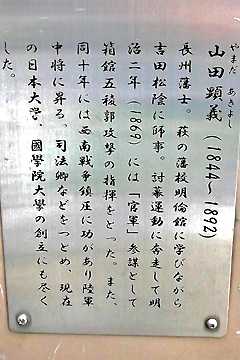 やまだ あきよし
山田顕義 (1844～1892)
長州藩士。萩の藩校明倫館に学びながら
吉田松陰に師事。討幕運動に奔走して明
治二年(1869)には「官軍」参謀として
箱館五稜郭攻撃の指揮をとった。また、
同十年には西南戦争鎮圧に功があり陸軍
中将に昇る。司法卿などをつとめ、現在
の日本大学、國學院大學の創立にも尽く
した。